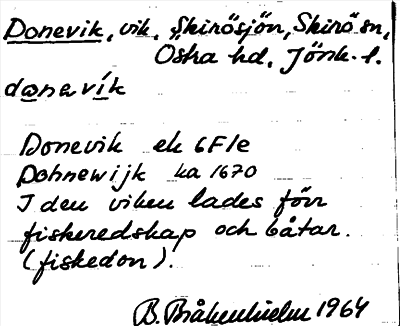 Donevik, vik, Skirösjön, Skirö sn,
Östra hd, Jönk. l.
donavík
Donevik ek 6F1e
Dohnewijk ka 1670
I den viken lades förr
fiskeredskap och båtar.
(fiskedon).
B. Bråkenhielm 1964